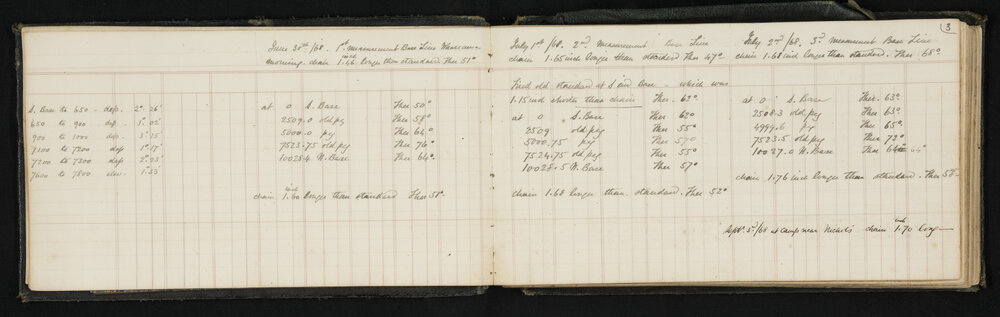 3
June 30th/68. 1st measurement Base Line
morning. chain 1.46 inch longer than standard Ther 51°
S. Base to 650 - dep. 2° 26'
650 to 900 - dep. 5° 02'
900 to 1000 - dep. 3° 15
7100 to 7200 dep 1° 17'
7200 to 7300 dep 2° 23'
7600 to 7800 elev. 1° 33'
at 0 S. Base Ther 50°
2509.0 old peg Ther 58°
5000.0 peg Ther 64°
7523.75 old peg Ther 76°
10028.4 N. Base Ther 64°
chain 1.60 inch longer than standard Ther 58°
July 1st/68. 2nd Measurement Base Line
chain 1.65 inch longer than standard Ther 67°
Tried old standard at S end Base - which was
1.15 inch shorter than chain Ther. 63°
at 0 S. Base Ther 60°
2509 old peg Ther 55°
5000.75 peg Ther 57°
7524.75 old peg Ther 55°
10028.5 N. Base Ther 57°
chain 1.68 longer than standard. Ther 52°
July 2nd/68. 3d Measurement Base Line
chain 1.68 inch longer than standard. Ther 68°
at 0 S. Base Ther. 63°
2508.3 old peg Ther 63°
4999.6 peg Ther 65°
7523.5 old peg Ther 72°
10027.0 N. Base Ther 64°
chain 1.76 inch longer than standard. Ther 58°
Sept. 5th/68 at camp near Nichols chain 1.70 inch long